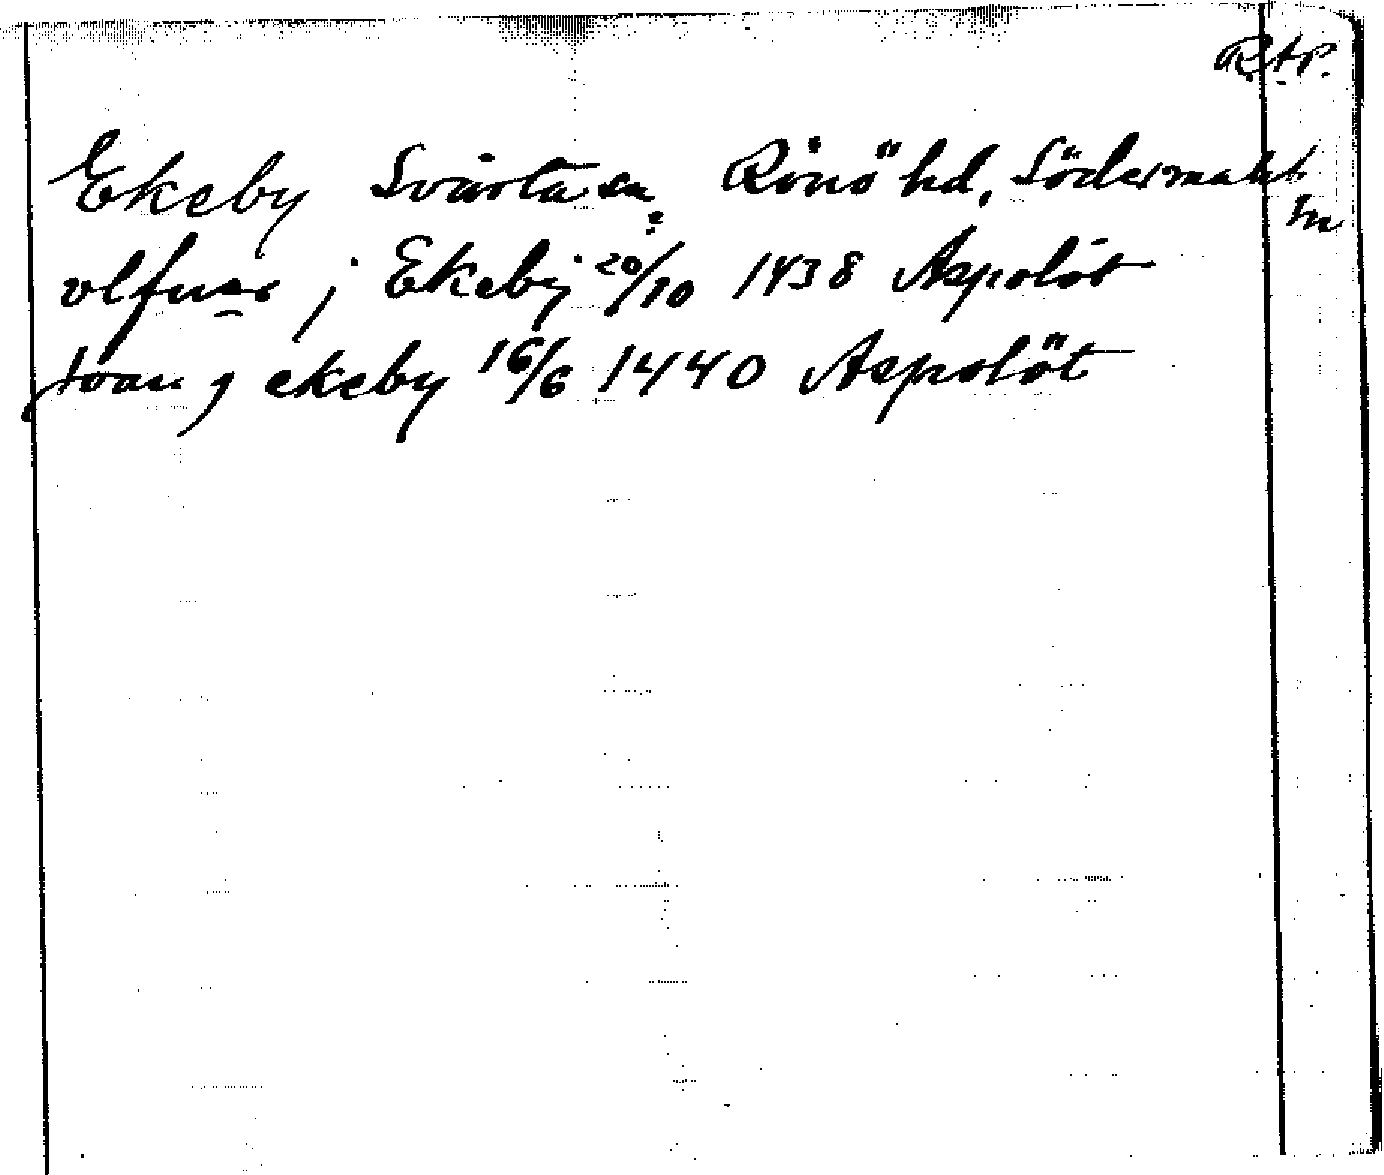 R.A.P.
Ekeby Svärta sn, Rönö hd, Södermanl.
sn
olfuar j Ekeby 20/10 1438 Aspolöt
joan j ekeby 16/6 1440 Aspolöt